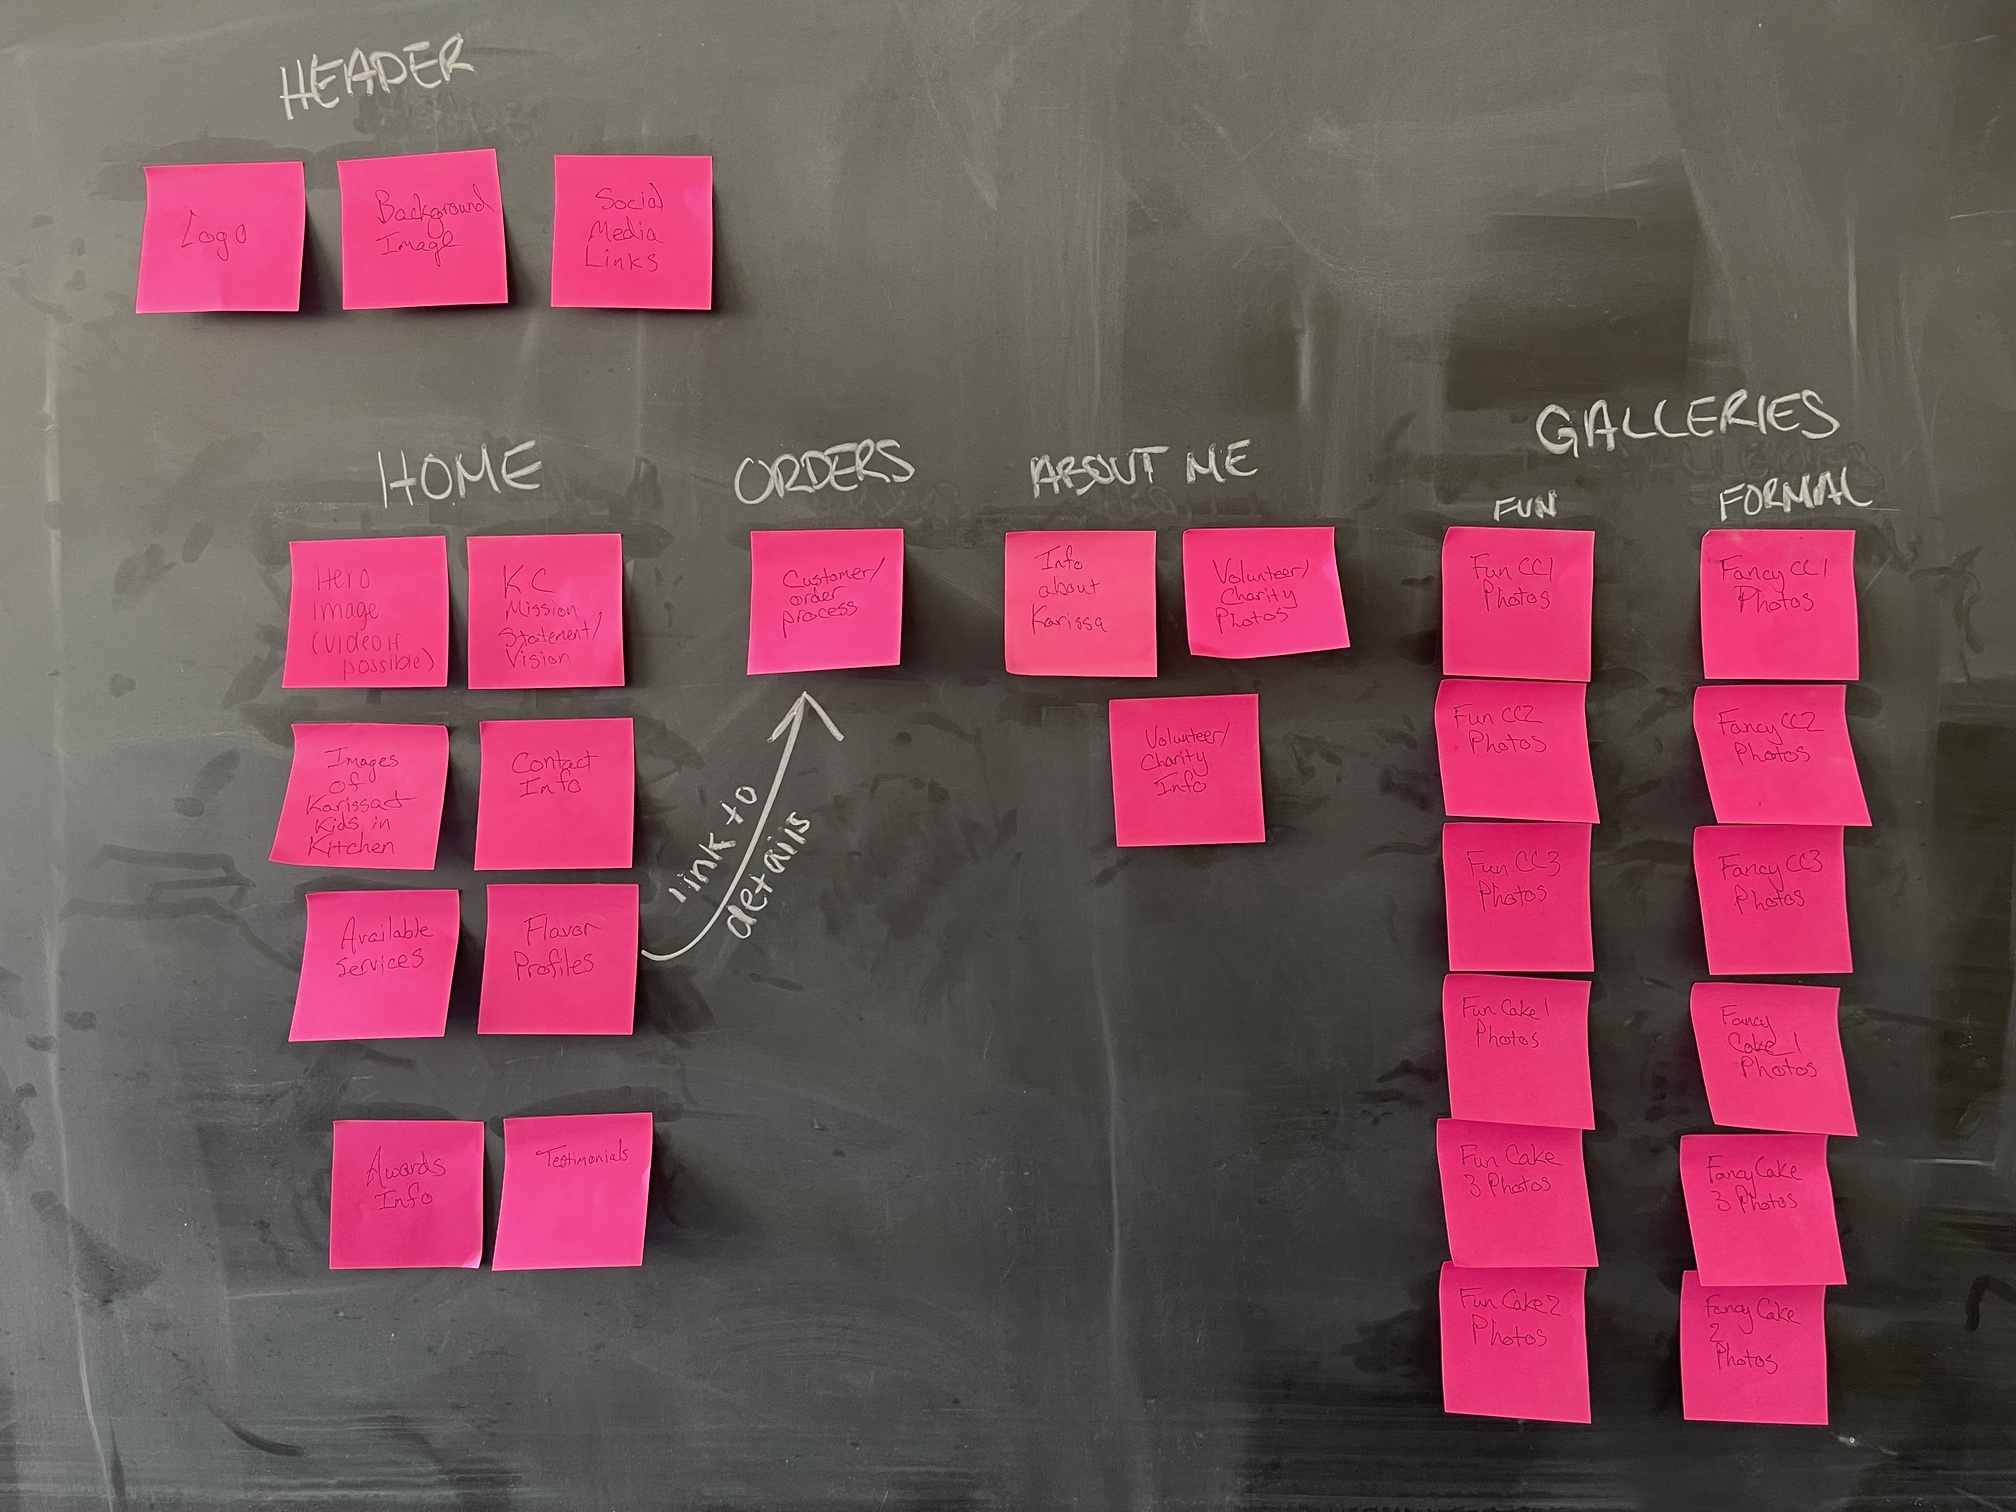 HEADER
Logo
Background
Image
Social
Media
Links
HOME
Hero
image
(video if
possible)
KC
Mission
Statement/
Vision
Images
of
Karissa +
Kids in
Kitchen
Contact
Info
Available
Services
Flavor
Profiles
Awards
Info
Testimonials
link to
details
ORDERS
Customer/
order
process
ABOUT ME
Info
about
Karissa
Volunteer/
Charity
Photos
Volunteer/
Charity
Info
GALLERIES
FUN
Fun CC1
Photos
Fun CC2
Photos
Fun CC3
Photos
Fun Cake 1
Photos
Fun Cake
3 Photos
Fun Cake 2
Photos
FORMAL
Fancy CC1
Photos
Fancy CC2
Photos
Fancy CC3
Photos
Fancy
Cake 1
Photos
Fancy Cake
3 Photos
Fancy Cake
2
Photos